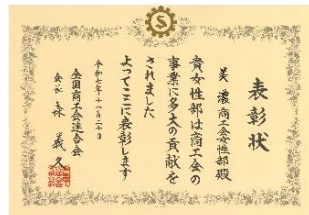 表彰状
美濃商工会女性部殿
貴女性部は商工会の
事業に多大の貢献を
されました
よってここに表彰します
令和七年十一月二十日
全国商工会連合会
会長 森 義久